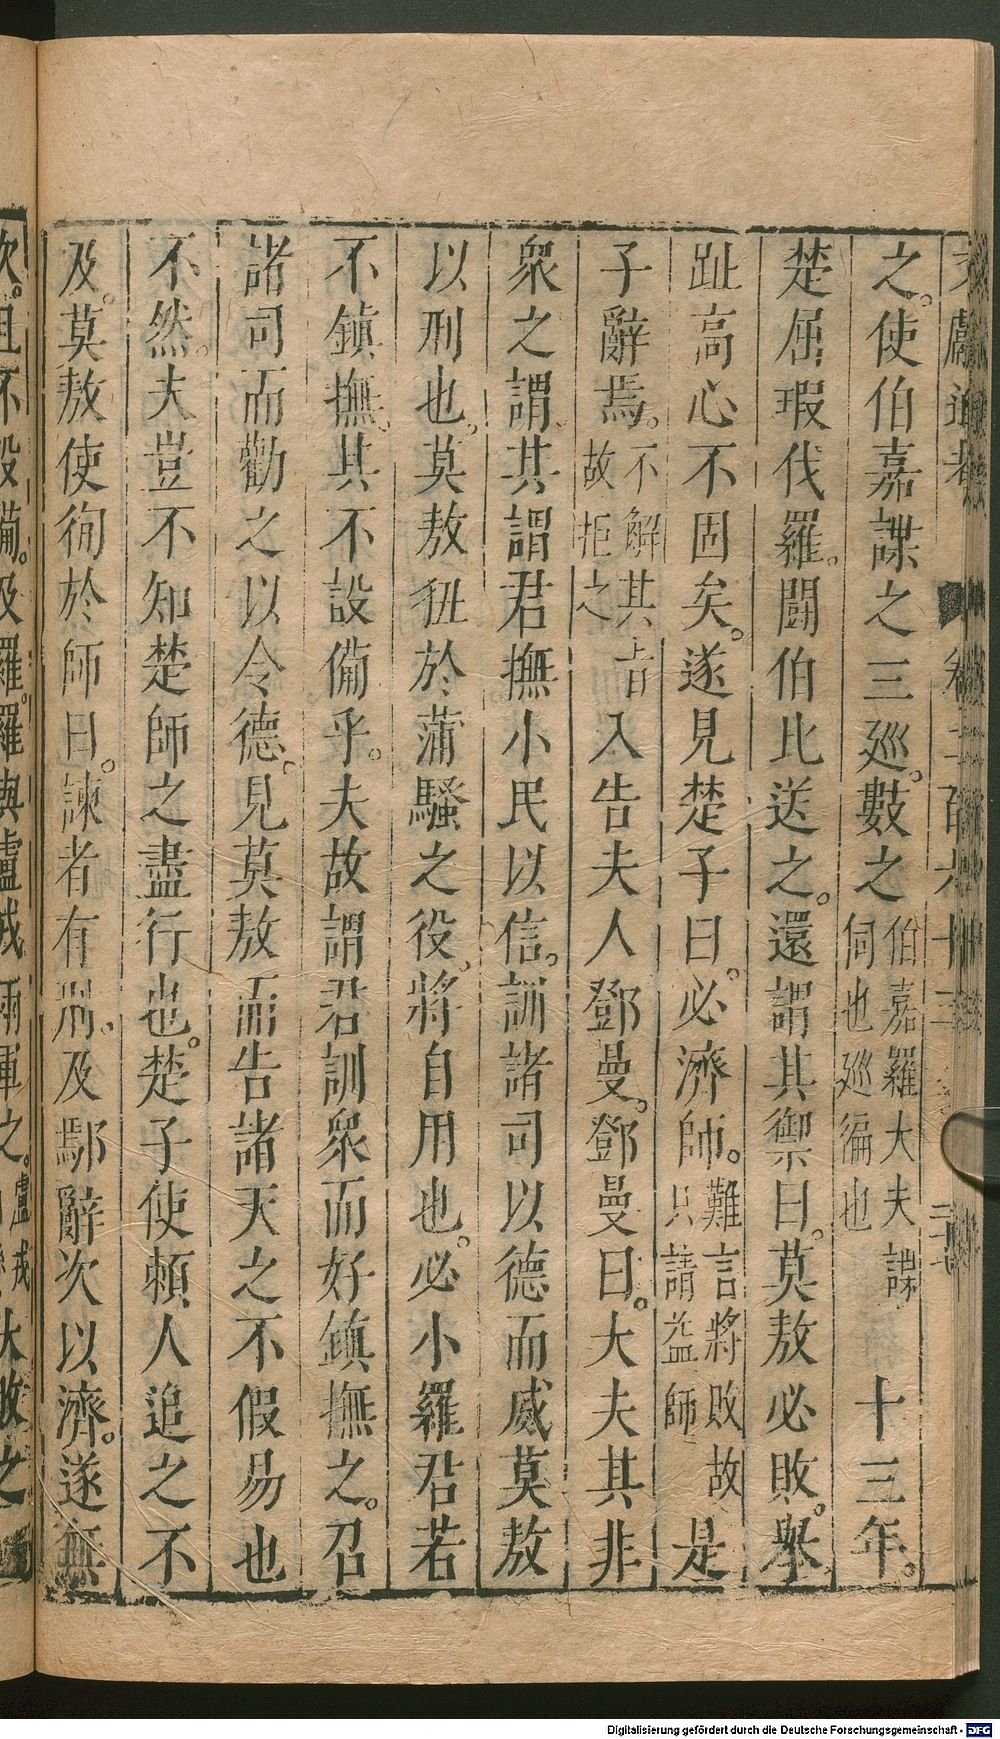 文獻通考 卷二百六十三 二十七
之。使伯嘉諜之三廵。數之伯嘉羅大夫諜伺也廵徧也十三年。
楚屈瑕伐羅。鬬伯比送之。還謂其禦曰。莫敖必敗。舉
趾高心不固矣。遂見楚子曰。必濟師。難言將敗故只請益師是
子辭焉。不解其旨故拒之入告夫人鄧曼。鄧曼曰。大夫其非
衆之謂。其謂君撫小民以信。訓諸司以德而威莫敖
以刑也。莫敖狃於蒲騷之役。將自用也。必小羅君若
不鎮撫。其不設備乎。夫故謂君訓衆而好鎮撫之。召
諸司而勸之以令德。見莫敖而告諸天之不假易也
不然。夫豈不知楚師之盡行也。楚子使賴人追之不
及。莫敖使徇於師曰。諫者有刑。及鄢辭次以濟。遂無
次。且不設備。及羅。羅與盧戎兩軍之。盧戎 大敗之
Digitalisierung gefördert durch die Deutsche Forschungsgemeinschaft - DFG